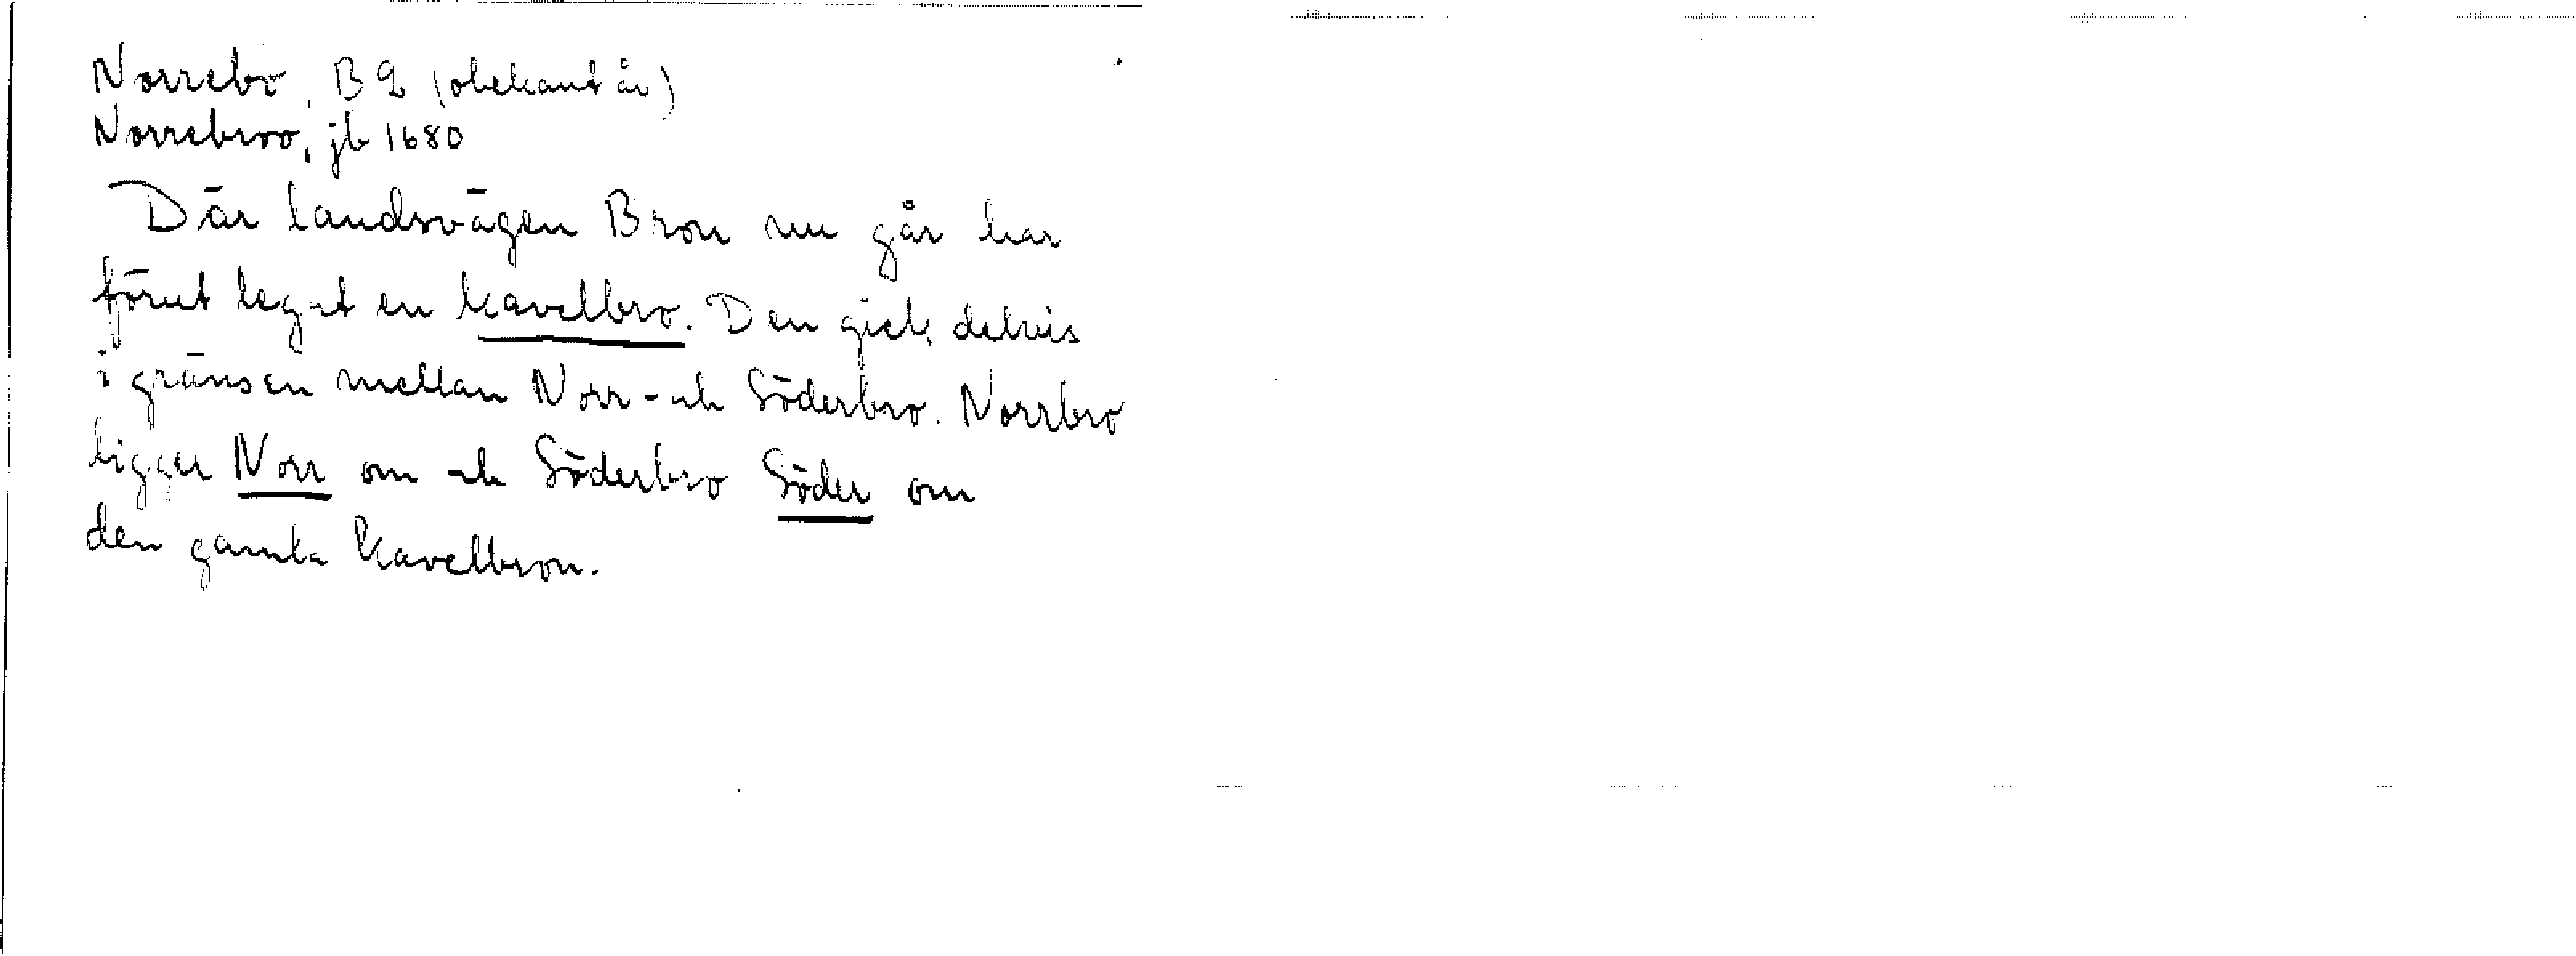 Norrebo, B 2 (obekant år)
Norrebroo, jb 1680
Där landsvägen Bron nu går har
förut legat en kavelbro. Den gick delvis
i gränsen mellan Norr- och Söderbro. Norrbro
ligger Norr om och Söderbro Söder om
den gamla kavelbron.